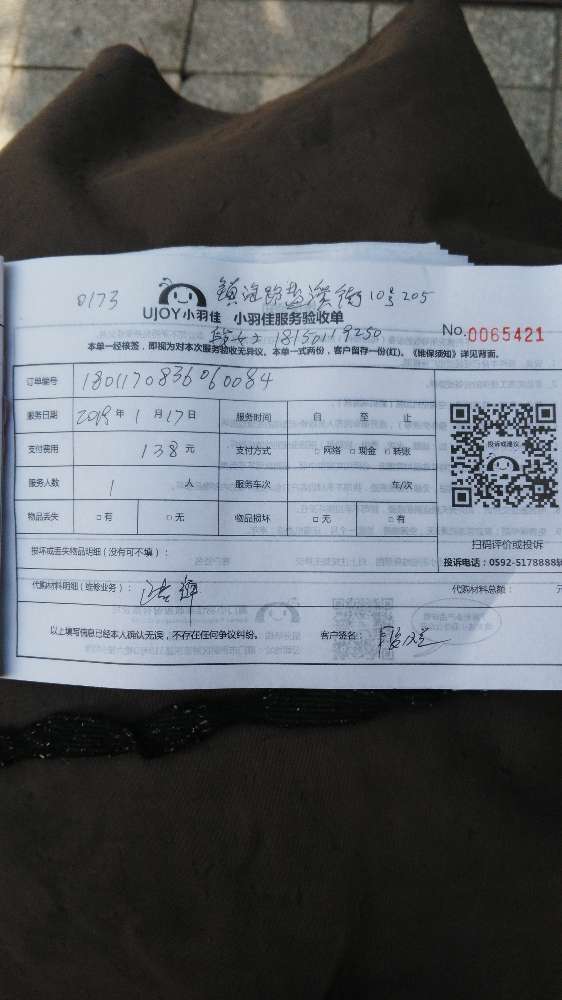 0173
镇海路盐溪街10号205
UJOY小羽佳 小羽佳服务验收单
女士 18150119250
No.0065421
本单一经核签，即视为对本次服务验收无异议。本单一式两份，客户留存一份(红)。《维保须知》详见背面。
订单编号 1801170836060084
服务日期 2018年1月17日 服务时间 自 至 止
支付费用 138元 支付方式 □网络 □现金 □转账
服务人数 1人 服务车次 车/次
物品丢失 □有 □无 物品损坏 □无 □有
投诉或建议
扫码评价或投诉
投诉电话：0592-5178888
损坏或丢失物品明细（没有可不填）：
代购材料明细(维修业务)： 代购材料总额： 元
以上填写信息已经本人确认无误，不存在任何争议纠纷。 客户签名：